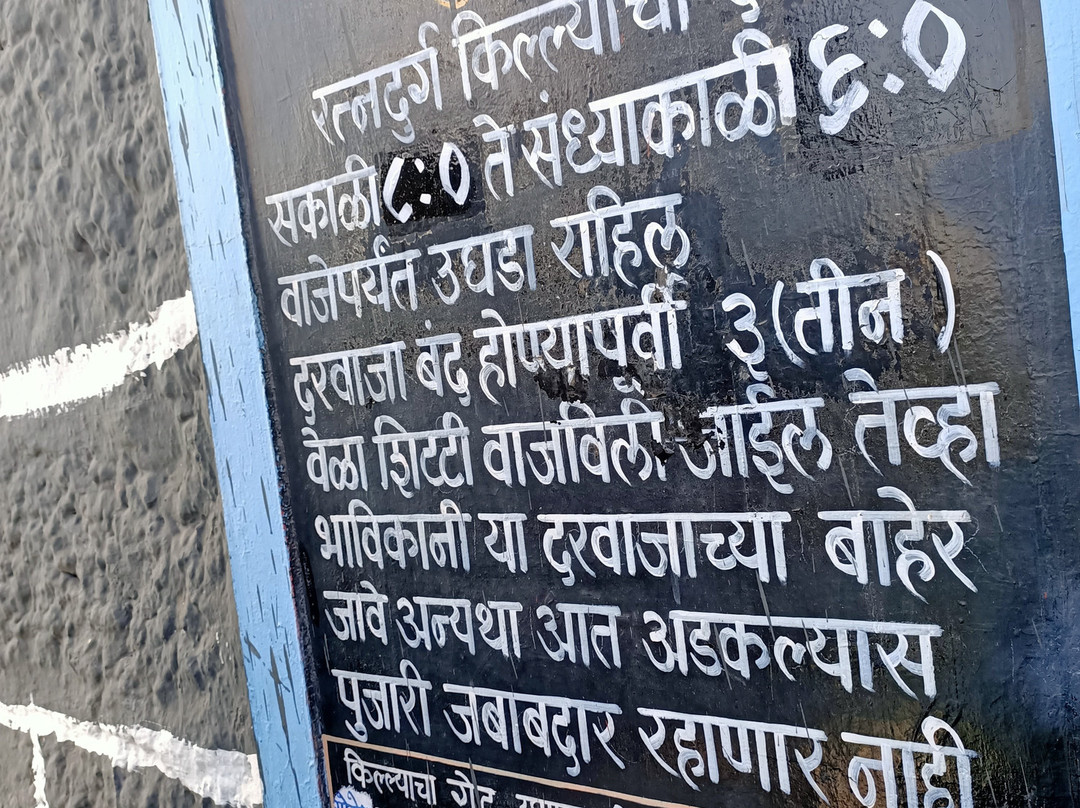 रत्नदुर्ग किल्ल्याचा
सकाळी ८:० ते संध्याकाळी ६:०
वाजेपर्यंत उघडा राहिल
दरवाजा बंद होण्यापर्वी ३ (तीन)
वेळा शिटटी वाजविली जाईल तेव्हा
भाविकानी या दरवाजाच्या बाहेर
जावे अन्यथा आत अडकल्यास
पुजारी जबाबदार रहाणार नाही
किल्ल्याचा गेट